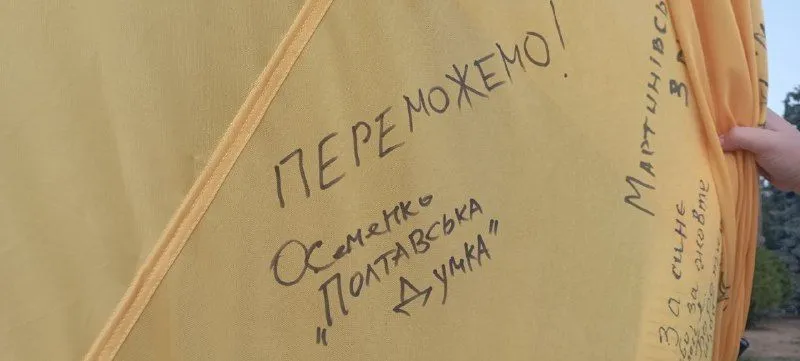 ПЕРЕМОЖЕМО!
ОСеменко
„ПОЛТАВСЬКА
ДУМКА"
МАРТИНІВСЬ
З
За синє
за жовте